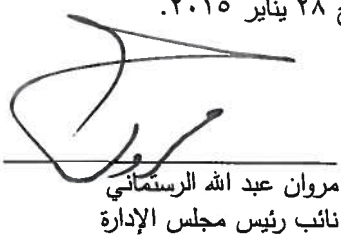 ٢٨ يناير ٢٠١٥.
مروان عبد الله الرستماني
نائب رئيس مجلس الإدارة